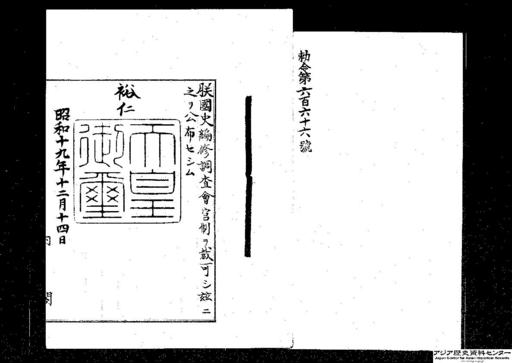 勅令第六百六十六號
朕國史編修調査會官制ヲ裁可シ茲ニ
之ヲ公布セシム
裕仁
天皇御璽
昭和十九年十二月十四日
内閣
アジア歴史資料センター
Japan Center for Asian Historical Records